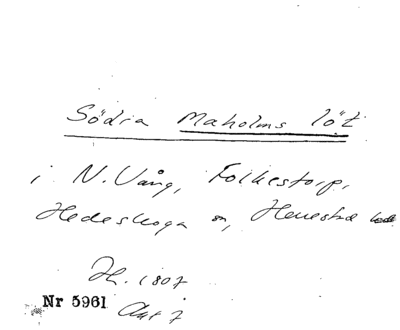 Södra Maholms löt
i N. Vång, Folkestorp,
Hedeskoga sn, Herrestad
H. 1807
Nr 5961 Akt 7